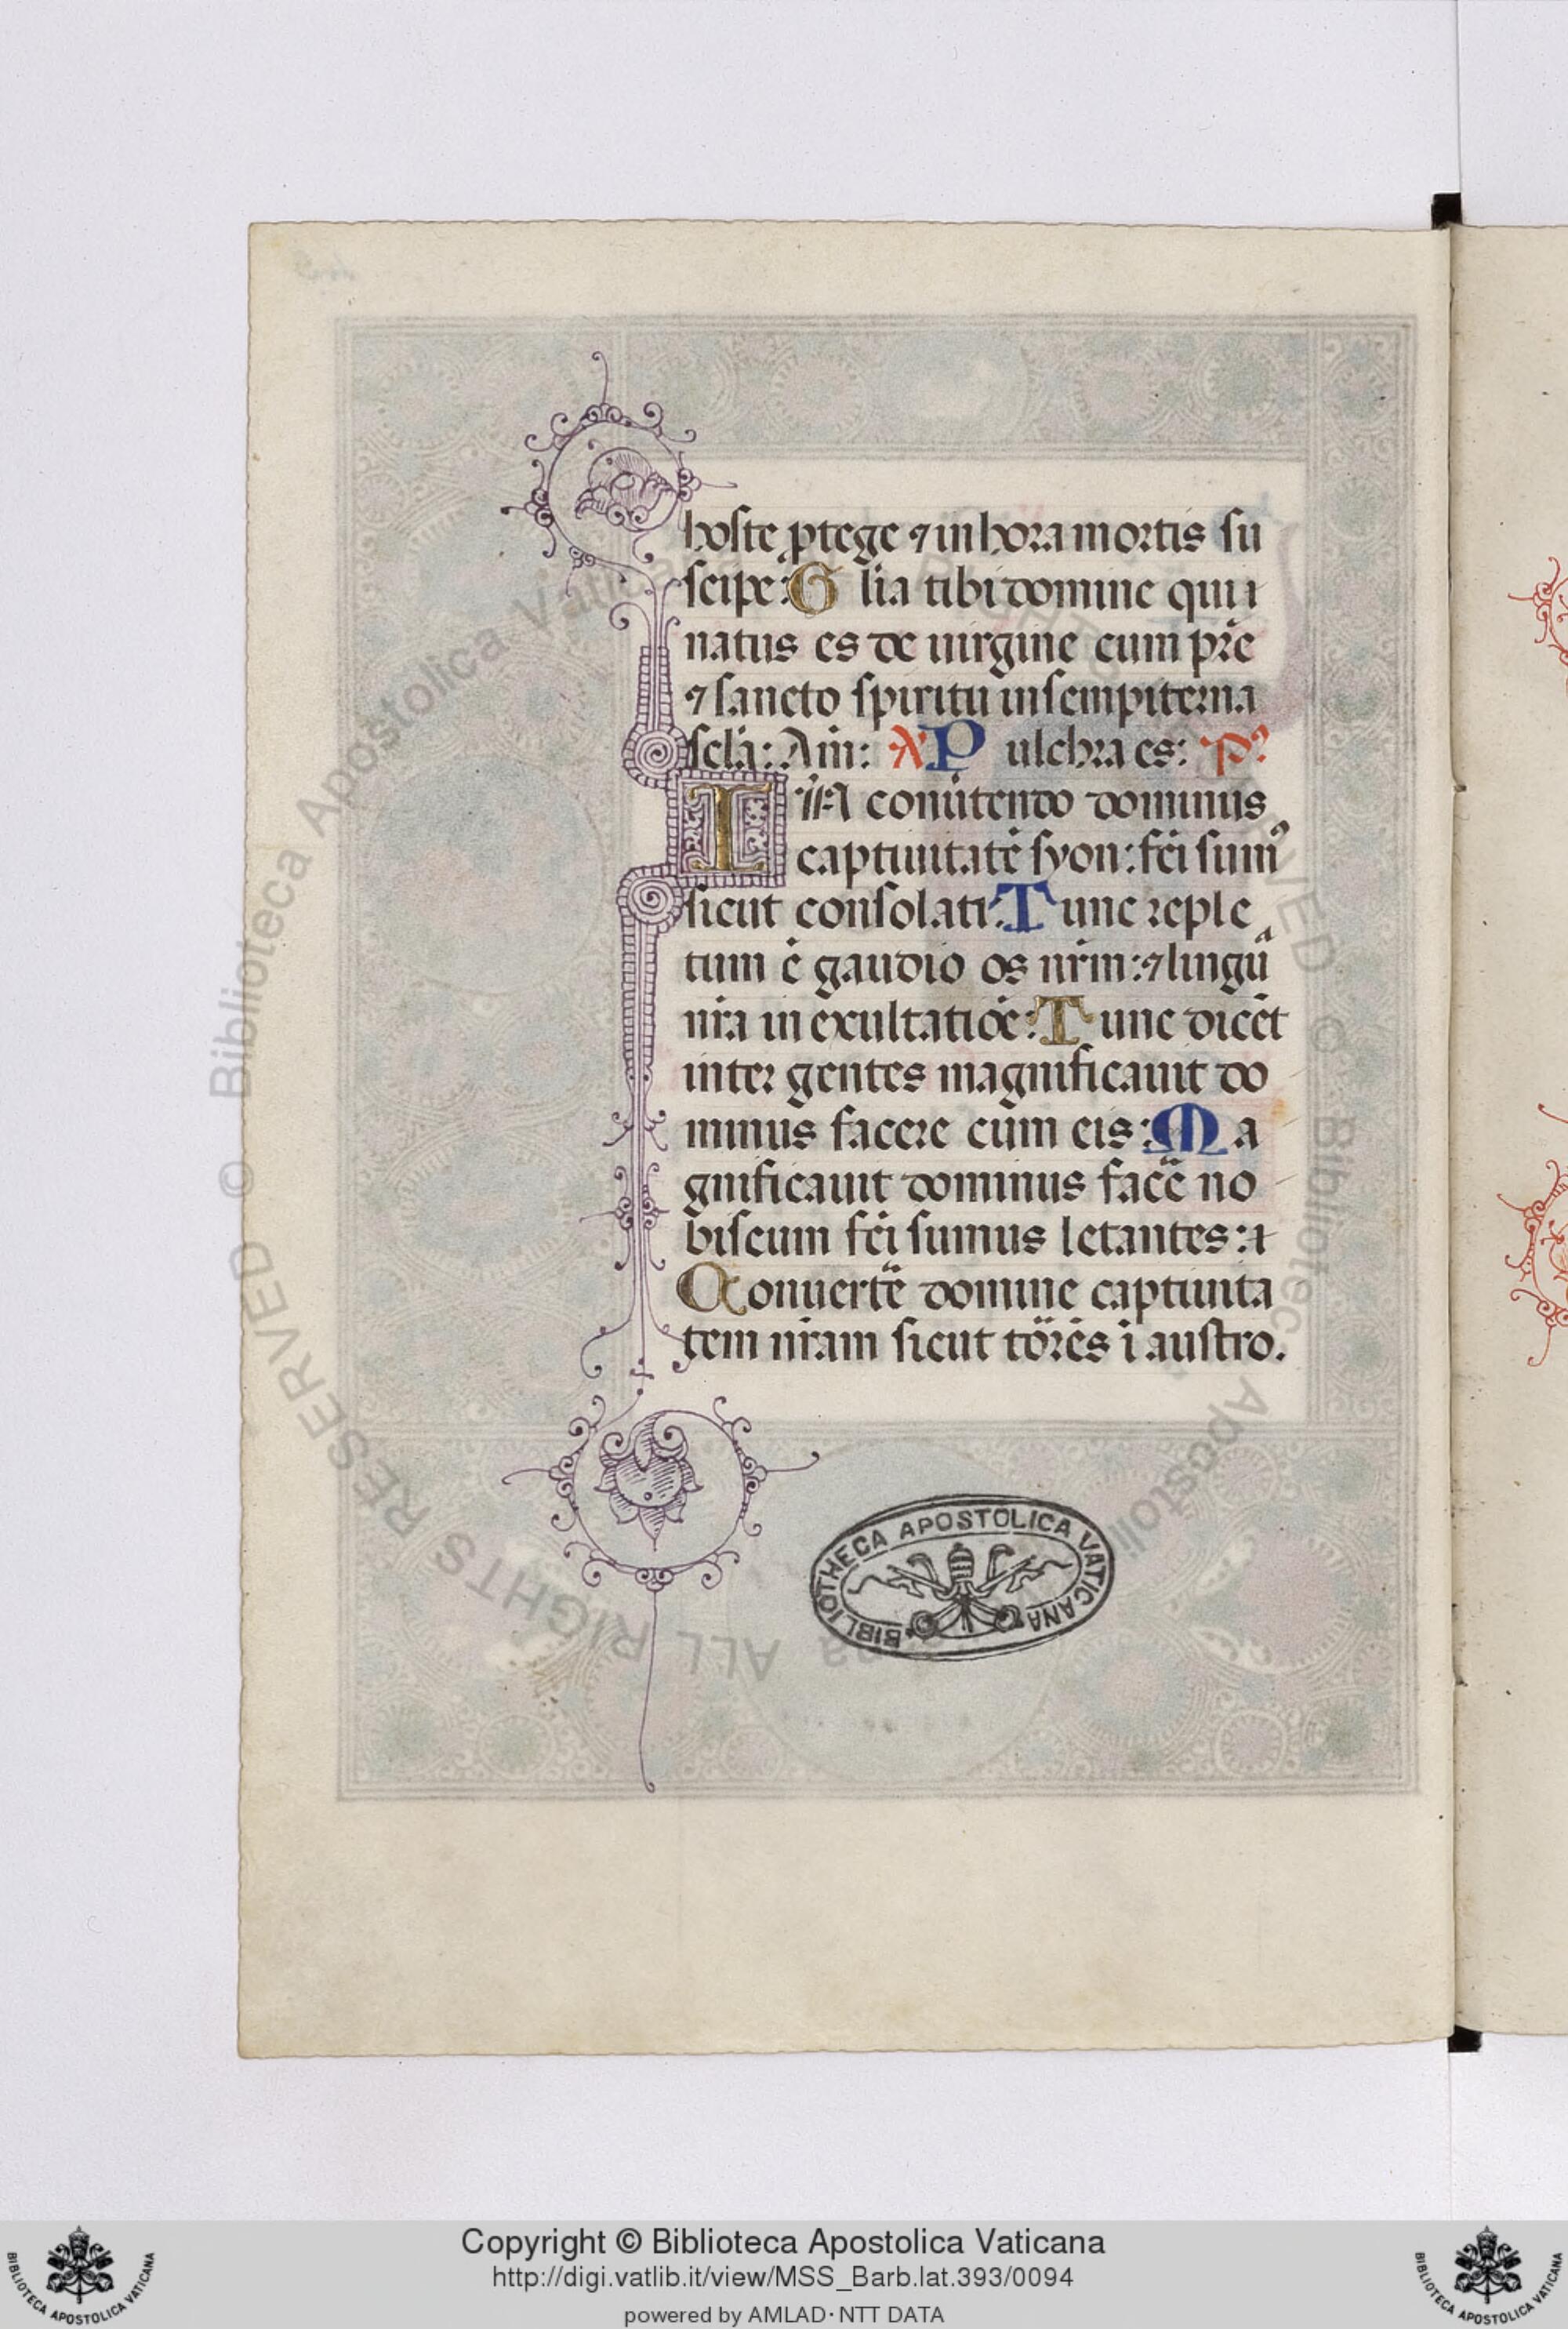 hoste ꝓtege ⁊ in hora mortis su
scipe: G lia tibi domine qui ı
natus es de uirgine cum pr̄e
⁊ sancto spiritu in sempiterna
scl̄a: Am̄: A P ulchra es: pꝰ
IN conūtendo dominus
captiuitatē syon: fc̄i sumꝰ
sicut consolati: T unc reple
tum ē gaudio os nr̄m: ⁊ linguᵃ
nr̄a in exultatiōe: T unc dicēt
inter gentes magnificauit do
minus facere cum eis: M a
gnificauit dominus facē no
biscum fc̄i sumus letantes: ı
Conuertē domine captiuita
tem nr̄am sicut torrēs ī austro.
BIBLIOTHECA APOSTOLICA VATICANA
© Biblioteca Apostolica Vaticana ALL RIGHTS RESERVED
Copyright © Biblioteca Apostolica Vaticana
http://digi.vatlib.it/view/MSS_Barb.lat.393/0094
powered by AMLAD·NTT DATA
BIBLIOTECA APOSTOLICA VATICANA
BIBLIOTECA APOSTOLICA VATICANA